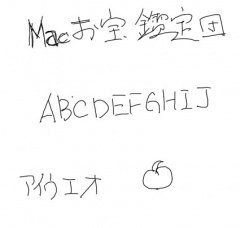 Macお宝鑑定団
ABCDEFGHIJ
アイウエオ